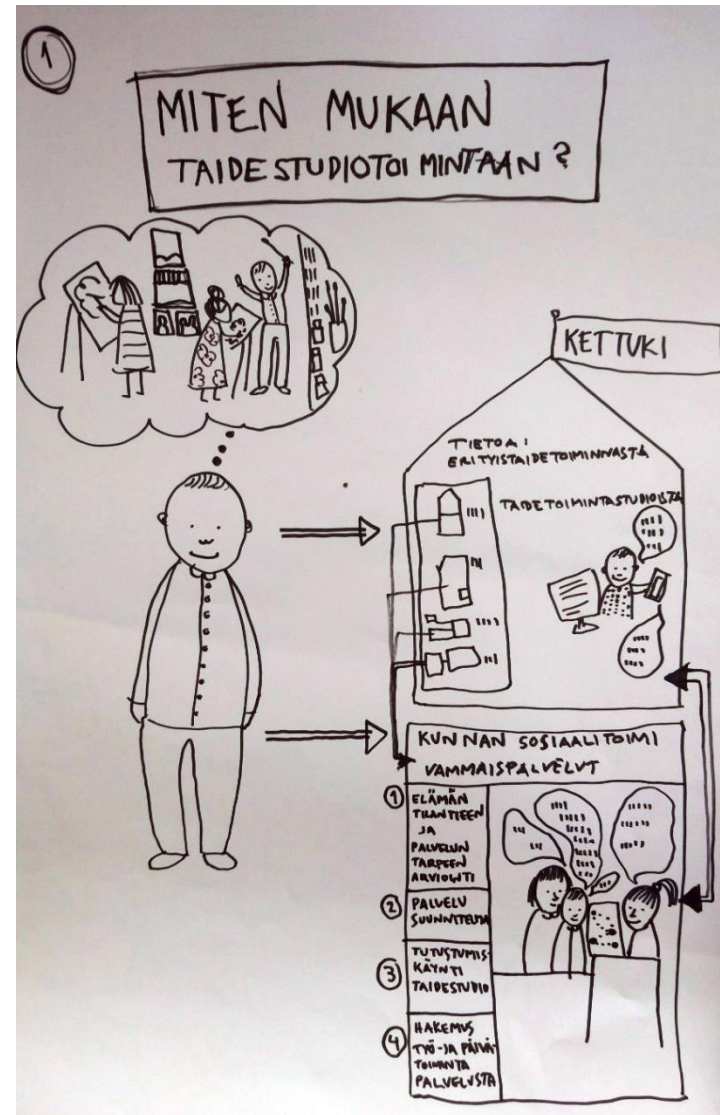 1
MITEN MUKAAN
TAIDESTUDIOTOIMINTAAN?
KETTUKI
TIETOA:
ERITYISTAIDETOIMINNASTA
TAIDETOIMINTASTUDIOISTA
KUNNAN SOSIAALITOIMI
VAMMAISPALVELUT
1 ELÄMÄN
TILANTEEN
JA
PALVELUN
TARPEEN
ARVIOINTI
2 PALVELU
SUUNNITELMA
3 TUTUSTUMIS-
KÄYNTI
TAIDESTUDIO
4 HAKEMUS
TYÖ-JA PÄIVÄ-
TOIMINTA
PALVELUSTA